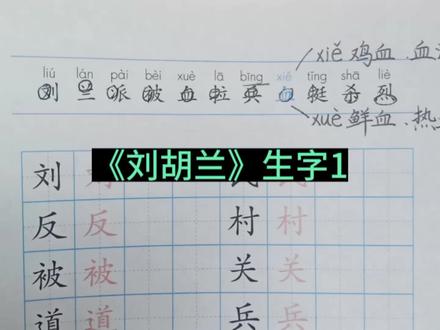 xiě 鸡血.血
liú lán pài bèi xuè lā bīng xiě tǐng shā liè
刘 兰 派 被 血 拉 兵 血 挺 杀 烈
xuè 鲜血.热
《刘胡兰》生字1
刘 刘 民 民
反 反 村 村
被 被 关 关
道 道 兵 兵